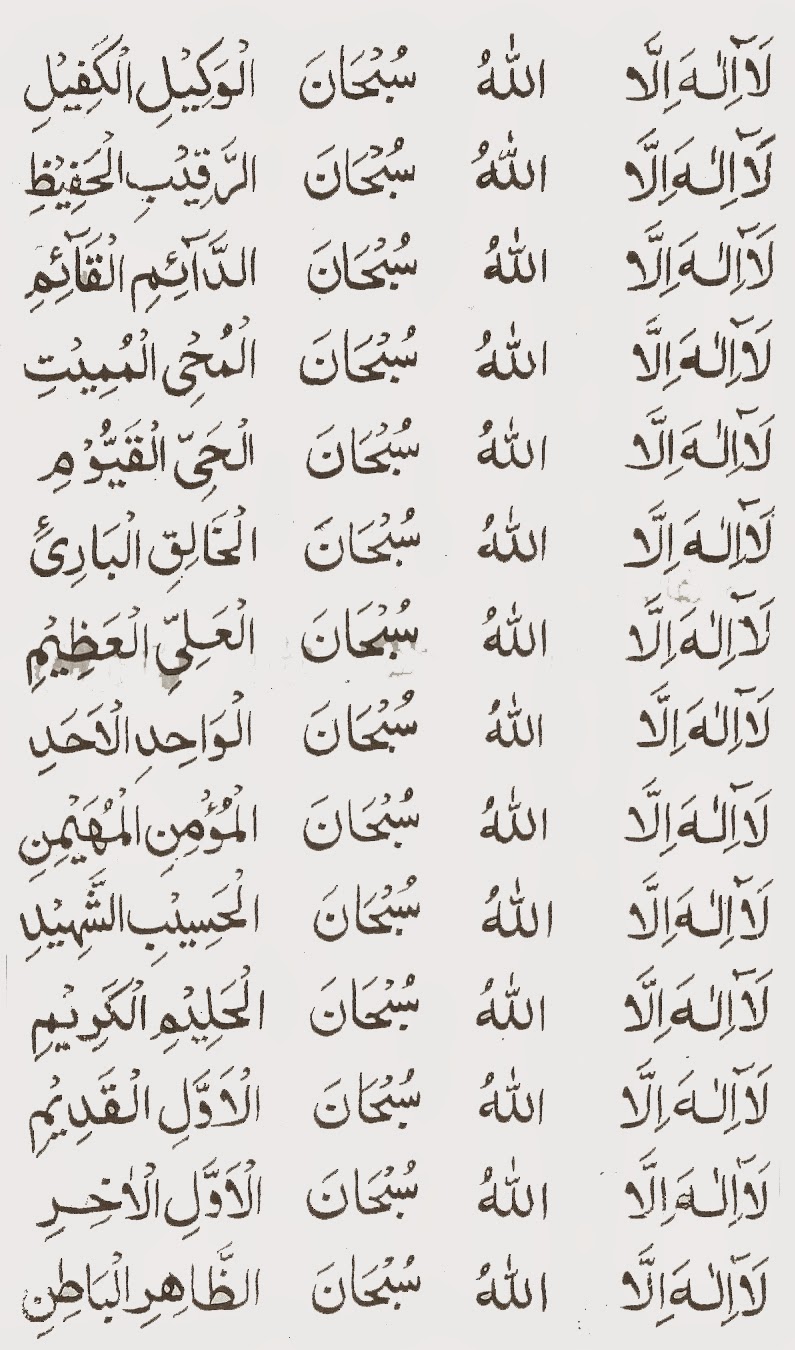 لَآ اِلٰهَ اِلَّا اللهُ سُبْحَانَ الْوَكِيْلِ الْكَفِيْلِ
لَآ اِلٰهَ اِلَّا اللهُ سُبْحَانَ الرَّقِيْبِ الْحَفِيْظِ
لَآ اِلٰهَ اِلَّا اللهُ سُبْحَانَ الدَّآئِمِ الْقَآئِمِ
لَآ اِلٰهَ اِلَّا اللهُ سُبْحَانَ الْمُحْىِ الْمُمِيْتِ
لَآ اِلٰهَ اِلَّا اللهُ سُبْحَانَ الْحَىِّ الْقَيُّوْمِ
لَآ اِلٰهَ اِلَّا اللهُ سُبْحَانَ الْخَالِقِ الْبَارِئِ
لَآ اِلٰهَ اِلَّا اللهُ سُبْحَانَ الْعَلِيِّ الْعَظِيْمِ
لَآ اِلٰهَ اِلَّا اللهُ سُبْحَانَ الْوَاحِدِ الْاَحَدِ
لَآ اِلٰهَ اِلَّا اللهُ سُبْحَانَ الْمُؤْمِنِ الْمُهَيْمِنِ
لَآ اِلٰهَ اِلَّا اللهُ سُبْحَانَ الْحَسِيْبِ الشَّهِيْدِ
لَآ اِلٰهَ اِلَّا اللهُ سُبْحَانَ الْحَلِيْمِ الْكَرِيْمِ
لَآ اِلٰهَ اِلَّا اللهُ سُبْحَانَ الْاَوَّلِ الْقَدِيْمِ
لَآ اِلٰهَ اِلَّا اللهُ سُبْحَانَ الْاَوَّلِ الْاٰخِرِ
لَآ اِلٰهَ اِلَّا اللهُ سُبْحَانَ الظَّاهِرِ الْبَاطِنِ